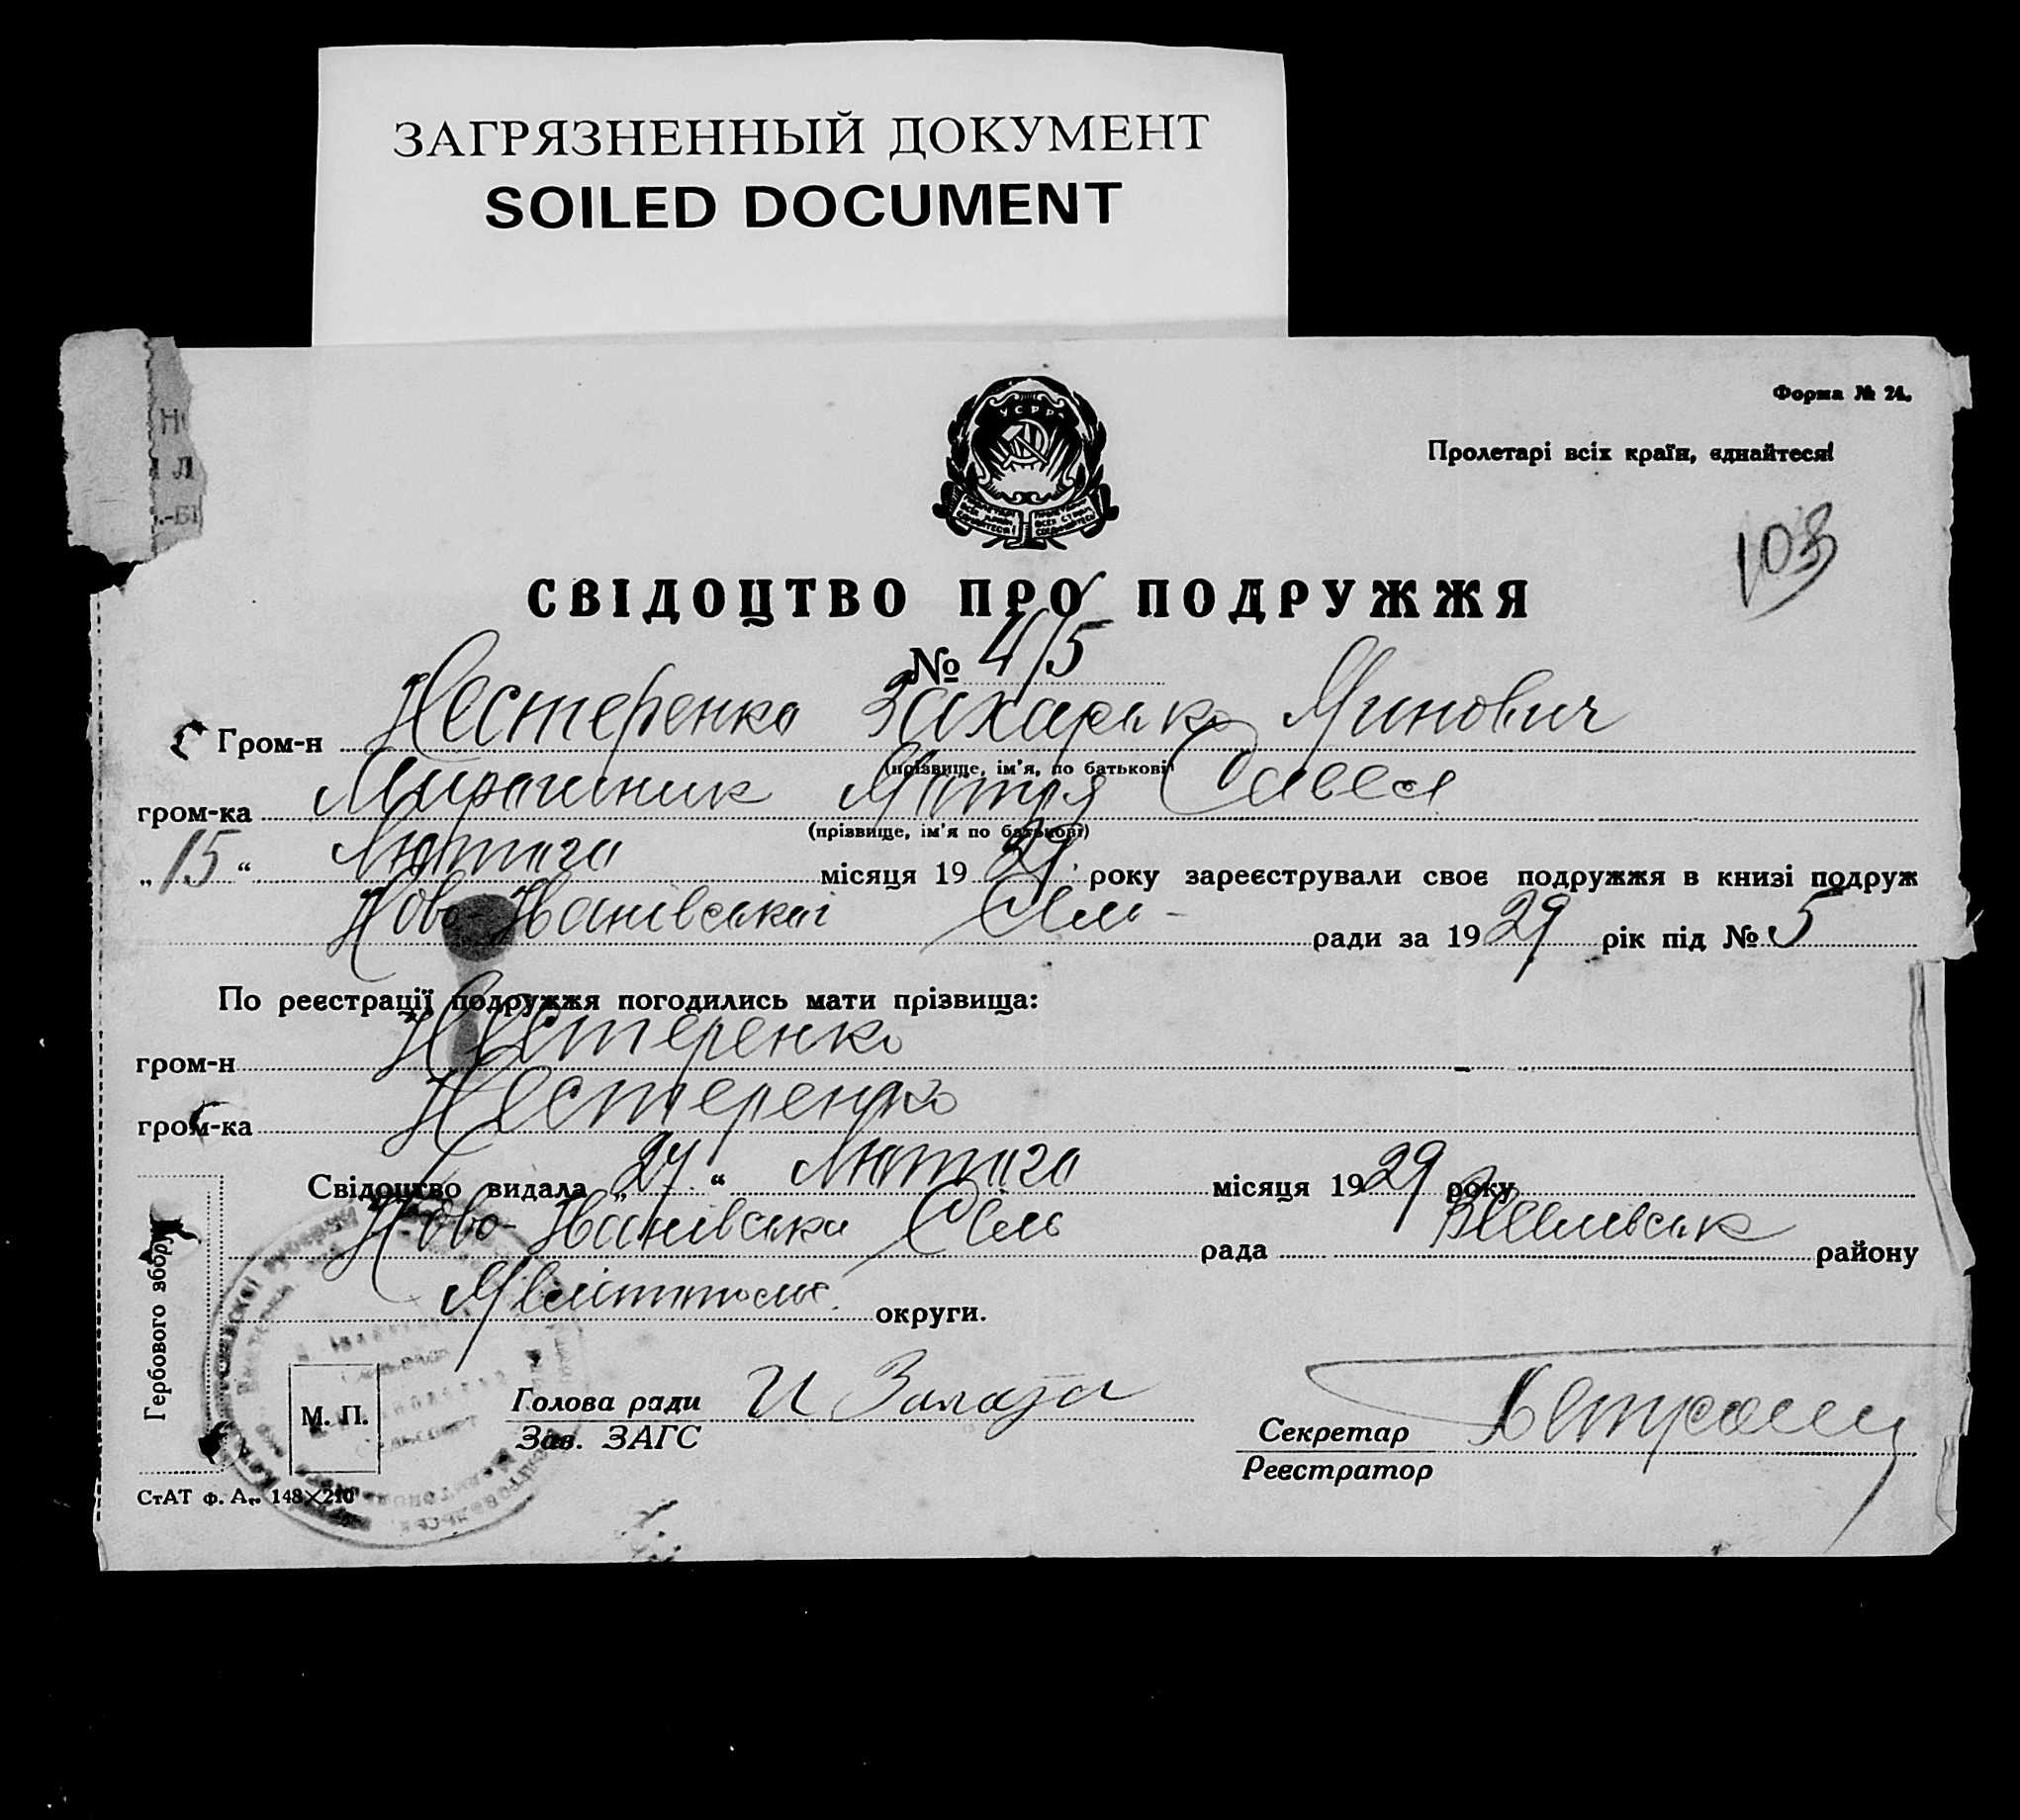 ЗАГРЯЗНЕННЫЙ ДОКУМЕНТ
SOILED DOCUMENT
Форма № 24.
УСРР
Пролетарі всіх країн, єднайтеся!
103
СВІДОЦТВО ПРО ПОДРУЖЖЯ
№ 4/5
Гром-н Нестеренко Захарько Минович
(прізвище, ім'я, по батькові)
гром-ка Мирошник Мотря Савеея
(прізвище, ім'я по батькові)
„15“ Лютого місяця 1929 року зареєстрували своє подружжя в книзі подруж
Ново-Іванівської Сіль- ради за 1929 рік під № 5
По реєстрації подружжя погодились мати прізвища:
гром-н Нестеренко
гром-ка Нестеренко
Свідоцтво видала „27“ Лютого місяця 1929 року
Ново-Іванівська Сіль рада району
округи.
Гербового збору
М. П.
Голова ради
Зав. ЗАГС
Секретар
Реєстратор
СтАТ ф. А₅. 148×210